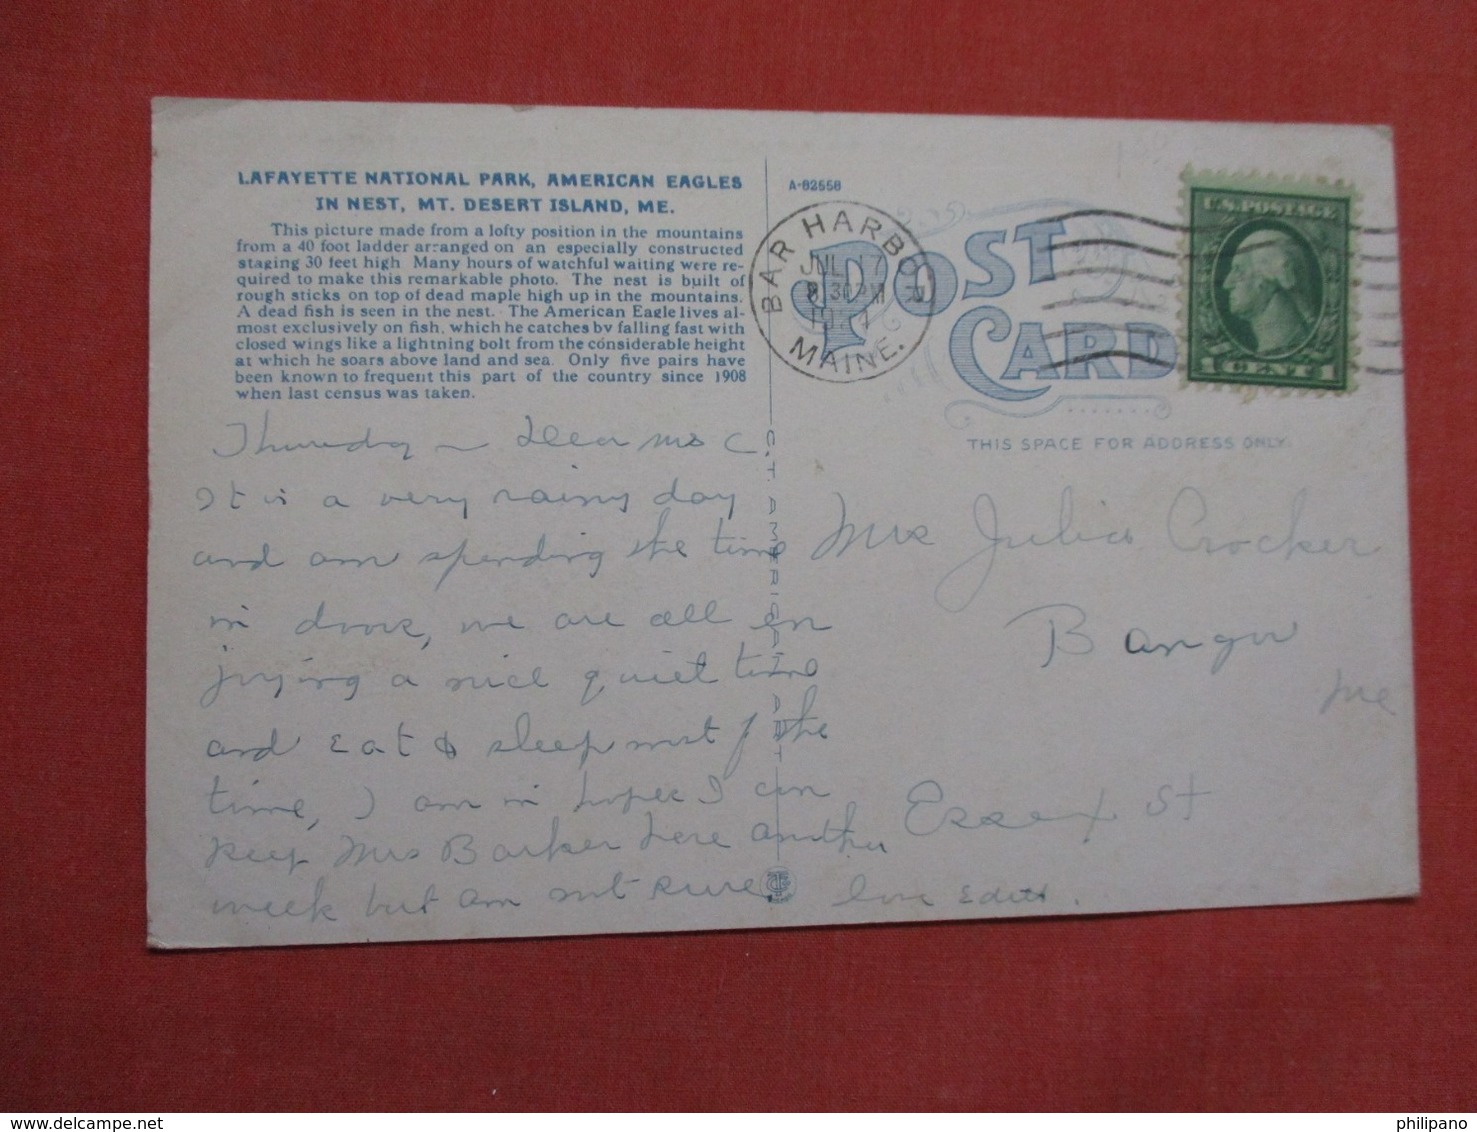 LAFAYETTE NATIONAL PARK, AMERICAN EAGLES
IN NEST, MT. DESERT ISLAND, ME.
This picture made from a lofty position in the mountains
from a 40 foot ladder arranged on an especially constructed
staging 30 feet high Many hours of watchful waiting were re-
quired to make this remarkable photo. The nest is built of
rough sticks on top of dead maple high up in the mountains.
A dead fish is seen in the nest. The American Eagle lives al-
most exclusively on fish, which he catches by falling fast with
closed wings like a lightning bolt from the considerable height
at which he soars above land and sea. Only five pairs have
been known to frequent this part of the country since 1908
when last census was taken.
Thursday – Dear Mrs C
It is a very rainy day
and am spending the time
in doors, we are all en
joying a nice quiet time
and eat & sleep most of the
time, I am in hopes I can
keep Mrs Barker here another
week but am not sure.
love Edith.
C. T. AMERICAN ART
A-82558
BAR HARBOR
JUL 17
8 30PM
MAINE.
POST CARD
U.S. POSTAGE
1 CENT 1
THIS SPACE FOR ADDRESS ONLY.
Mrs Julia Crocker
Bangor
Me
Essex St
philipano